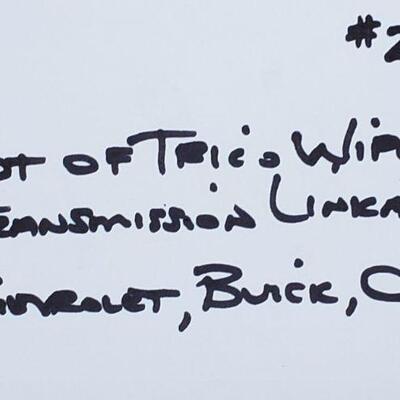 #2
ot of Trico Wip
ransmission Linka
hevrolet, Buick, O